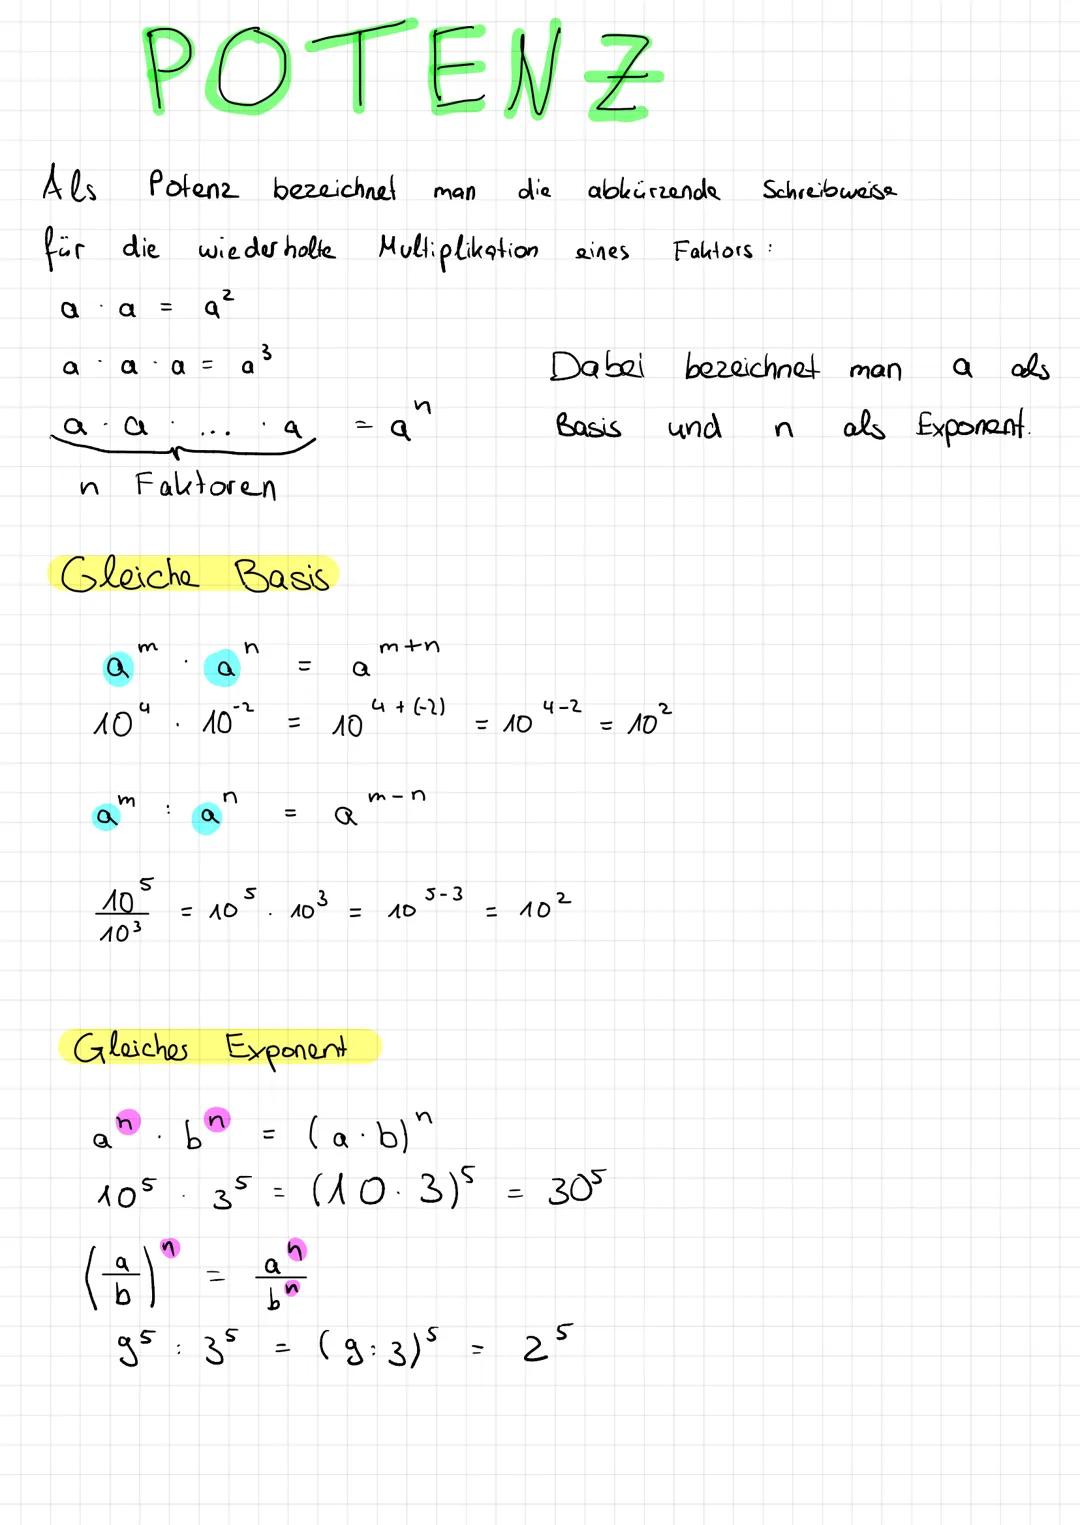 POTENZ
Als Potenz bezeichnet man die abkürzende Schreibweise
für die wiederholte Multiplikation eines Faktors :
a · a = a²
a · a · a = a³
Dabei bezeichnet man a als
a · a · ... · a = aⁿ
Basis und n als Exponent.
n Faktoren
Gleiche Basis
aᵐ · aⁿ = aᵐ⁺ⁿ
10⁴ · 10⁻² = 10⁴⁺⁽⁻²⁾ = 10⁴⁻² = 10²
aᵐ : aⁿ = aᵐ⁻ⁿ
10⁵/10³ = 10⁵ · 10³ = 10⁵⁻³ = 10²
Gleiches Exponent
aⁿ · bⁿ = (a · b)ⁿ
10⁵ · 3⁵ = (10 · 3)⁵ = 30⁵
(a/b)ⁿ = aⁿ/bⁿ
9⁵ : 3⁵ = (9 : 3)⁵ = 2⁵